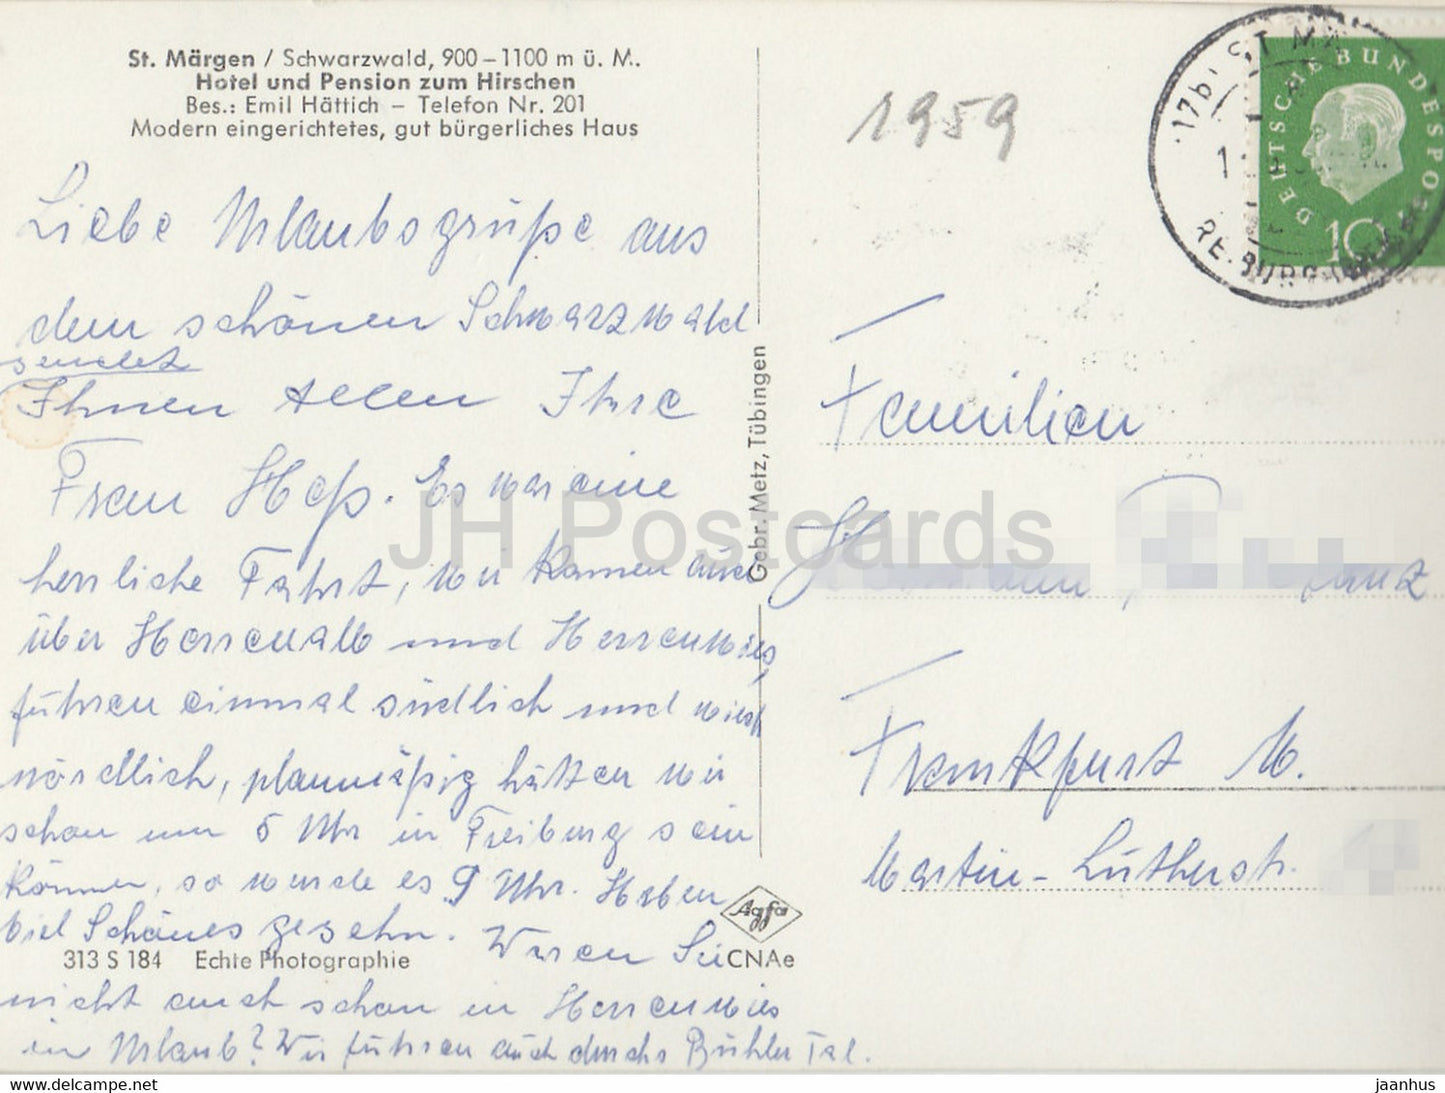 St. Märgen / Schwarzwald, 900–1100 m ü. M.
Hotel und Pension zum Hirschen
Bes.: Emil Hättich – Telefon Nr. 201
Modern eingerichtetes, gut bürgerliches Haus
Liebe Urlaubsgrüße aus
dem schönen Schwarzwald
sendet
Ihnen allen Ihre
Frau Heß. Es war eine
herrliche Fahrt, wir kamen auch
über Herrenalb und Herrenwies,
fuhren einmal südlich und
nördlich, planmäßig hätten wir
schon um 5 Uhr in Freiburg sein
können, so wurde es 9 Uhr. Haben
viel Schönes gesehn. Waren Sie
nicht auch schon in Herrenwies
in Urlaub? Wir fuhren auch durchs Bühler Tal.
313 S 184 Echte Photographie
Gebr. Metz, Tübingen
Agfa
CNAe
1959
17b ST. MÄ
DEUTSCHE BUNDESPO
10
Familien
Frankfurt M.
Martin-Lutherstr.
JH Postcards
www.delcampe.net
jaanhus